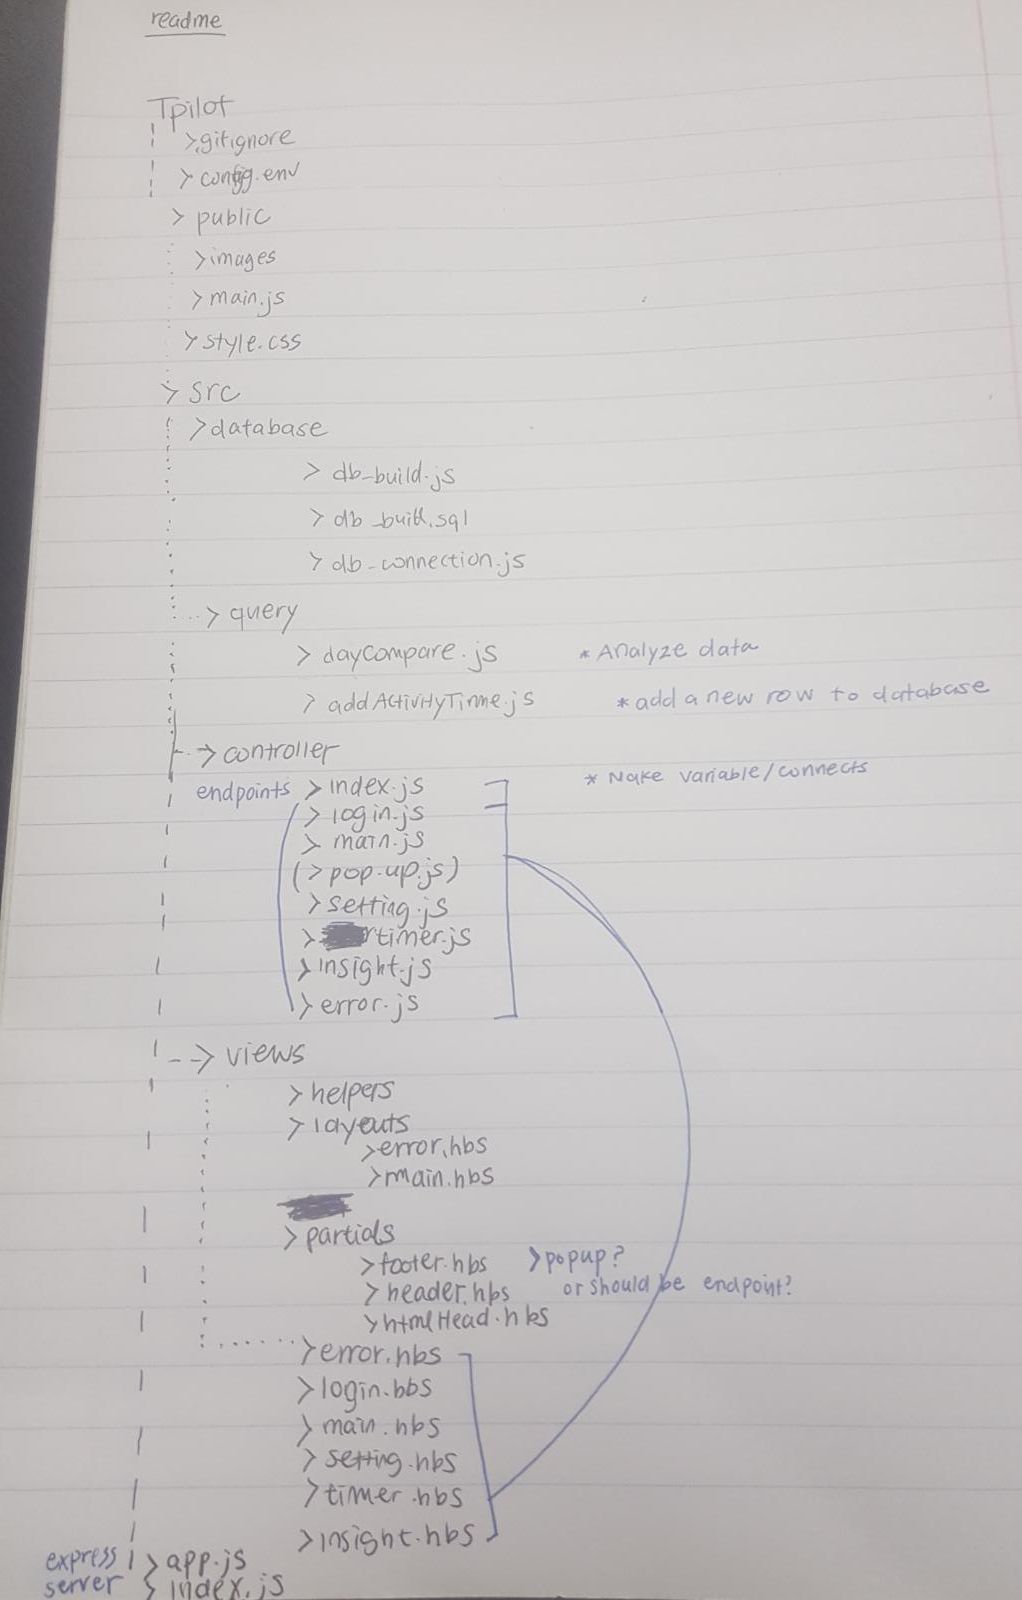 readme
Tpilot
>.gitignore
> config.env
> public
>images
>main.js
>style.css
> src
>database
> db-build.js
> db_built.sql
> db-connection.js
> query
> dayCompare.js * Analyze data
> addActivityTime.js * add a new row to database
-> controller
endpoints > index.js * Make variable/connects
> login.js
> main.js
(> pop-up.js)
> setting.js
> timer.js
> insight.js
> error.js
--> views
> helpers
> layouts
>error.hbs
>main.hbs
>partials
>footer.hbs >popup?
>header.hbs or should be endpoint?
>htmlHead.hbs
>error.hbs
>login.hbs
>main.hbs
>setting.hbs
>timer.hbs
>insight.hbs
express > app.js
server > index.js